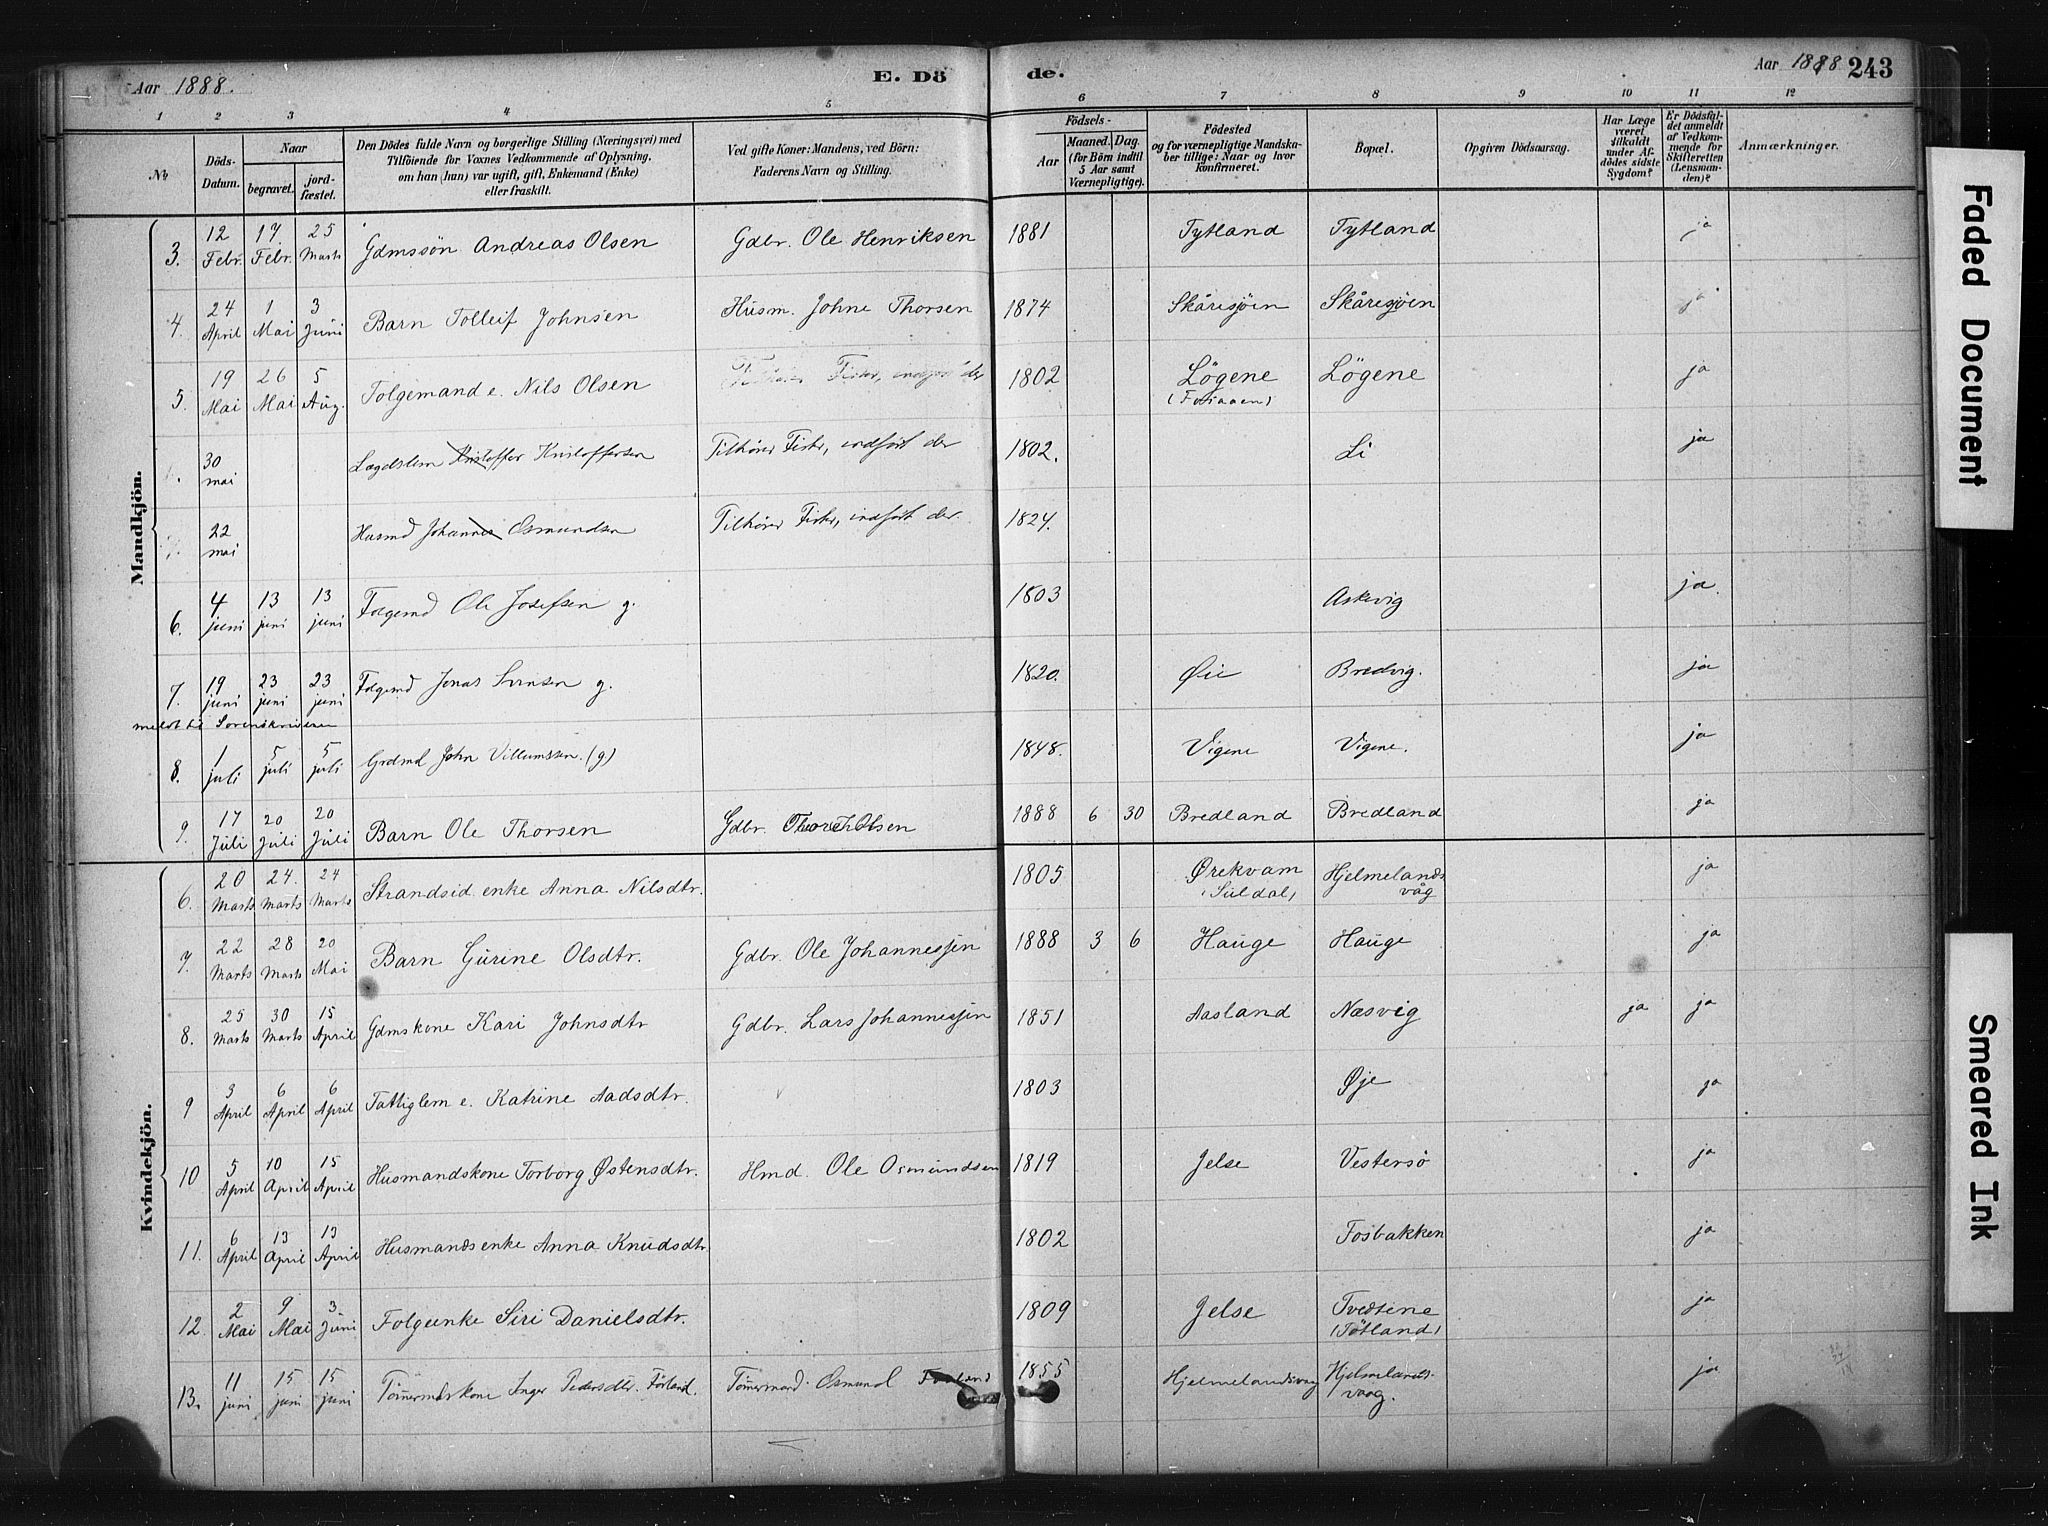 Aar 1888. E. Döde. Aar 1888 243
1 2 3 4 5 6 7 8 9 10 11 12
No
Döds-Datum.
Naar
begravet.
jord-fæstet.
Den Dödes fulde Navn og borgerlige Stilling (Næringsvei) med
Tilföiende for Voxnes Vedkommende af Oplysning,
om han (hun) var ugift, gift, Enkemand (Enke)
eller fraskilt.
Ved gifte Koner: Mandens, ved Börn:
Faderens Navn og Stilling.
Födsels-
Aar
Maaned. Dag.
(for Börn indtil
5 Aar samt
Værnepligtige).
Födested
og for værnepligtige Mandska-
ber tillige: Naar og hvor
konfirmeret.
Bopæl.
Opgiven Dödsaarsag.
Har Læge
været
tilkaldt
under Af-
dödes sidste
Sygdom?
Er Dödsfal-
det anmeldt
af Vedkom-
mende for
Skifteretten
(Lensman-
den)?
Anmærkninger.
Mandkjön.
3. 12 Febr. 17 Febr. 25 Marts Gdmssön Andreas Olsen Gdbr. Ole Henriksen 1881 Tytland Tytland ja
4. 24 April 1 Mai 3 Juni Barn Tolleif Johnsen Husm. Johne Thorsen 1874 Skåresjöen Skåresjöen ja
5. 19 Mai 26 Mai 5 Aug. Folgemand e. Nils Olsen Tilhörer Fister, indfört der 1802 Lögene Lögene ja
30 mai Lægdslem Kristoffer Kristoffersen Tilhörer Fister, indfört der 1802. Li ja
22 mai Husmd Johannes Osmundsen Tilhörer Fister, indfört der. 1824.
6. 4 juni 13 juni 13 juni Folgemd Ole Josefsen g. 1803 Askvig ja.
7. 19 juni 23 juni 23 juni Folgemd Jonas Svensen g. 1820. Øie Bredvig. ja
meldt til Sorenskriveren
8. 1 juli 5 juli 5 juli Grdmd John Villumssen. (g) 1848. Vigene Vigene. ja
9. 17 Juli 20 Juli 20 Juli Barn Ole Thorsen Gdbr. Olsen 1888 6 30 Bredland Bredland ja
Kvindekjön.
6. 20 Marts 24. Marts 24 Marts Strandsid enke Anna Nilsdtr. 1805 Ørekvam (Suldal) Hjelmelands våg ja
7. 22 Marts 28 Marts 20 Mai Barn Gurine Olsdtr. Gdbr. Ole Johannessen 1888 3 6 Hauge Hauge ja
8. 25 Marts 30 Marts 15 April Gdmskone Kari Johnsdtr Gdbr. Lars Johannessen 1851 Aasland Næsvig ja ja
9 3 April 6 April 6 April Fattiglem e. Katrine Aadsdtr. 1803 Øje ja
10 5 April 10 April 15 April Husmandskone Torborg Østensdtr. Hmd. Ole Osmundsen 1819 Jelse Vestersö ja
11. 6 April 13 April 13 April Husmandsenke Anna Knudsdtr 1802 Fosbakken ja
12. 2 Mai 9 Mai 3 Juni Folgeenke Siri Danielsdtr. 1809 Jelse Tvedtene (Tötland) ja
13. 11 juni 15 juni 15 juni Tömermdskone Inger Pedersdtr. Förland. Tömermand. Osmund 1855 Hjelmelandsvag Hjelmelands-vaag. ja
Faded Document
Smeared Ink